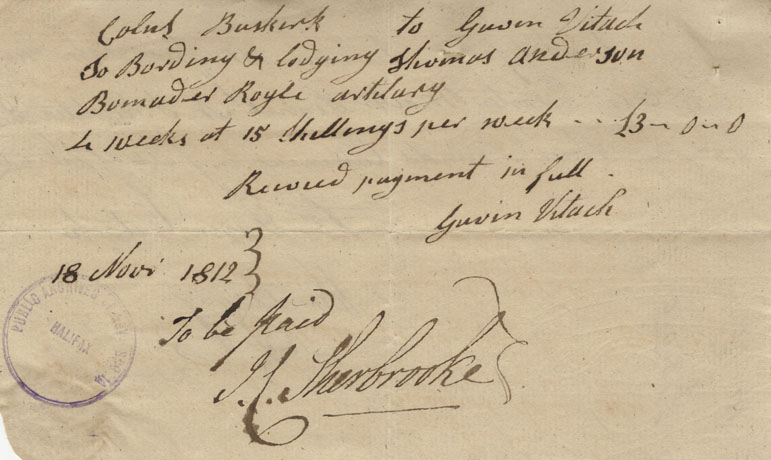 Colnl Buskerk to Gavin Vitach
To Bording & lodging Thomas Anderson
Bomader Royle artilary
4 weeks at 15 Shillings per week - - £3 - 0 - 0
Receved payment in full.
Gavin Vitach
18 Novr 1812
To be paid
J. C. Sherbrooke
PUBLIC ARCHIVES
HALIFAX